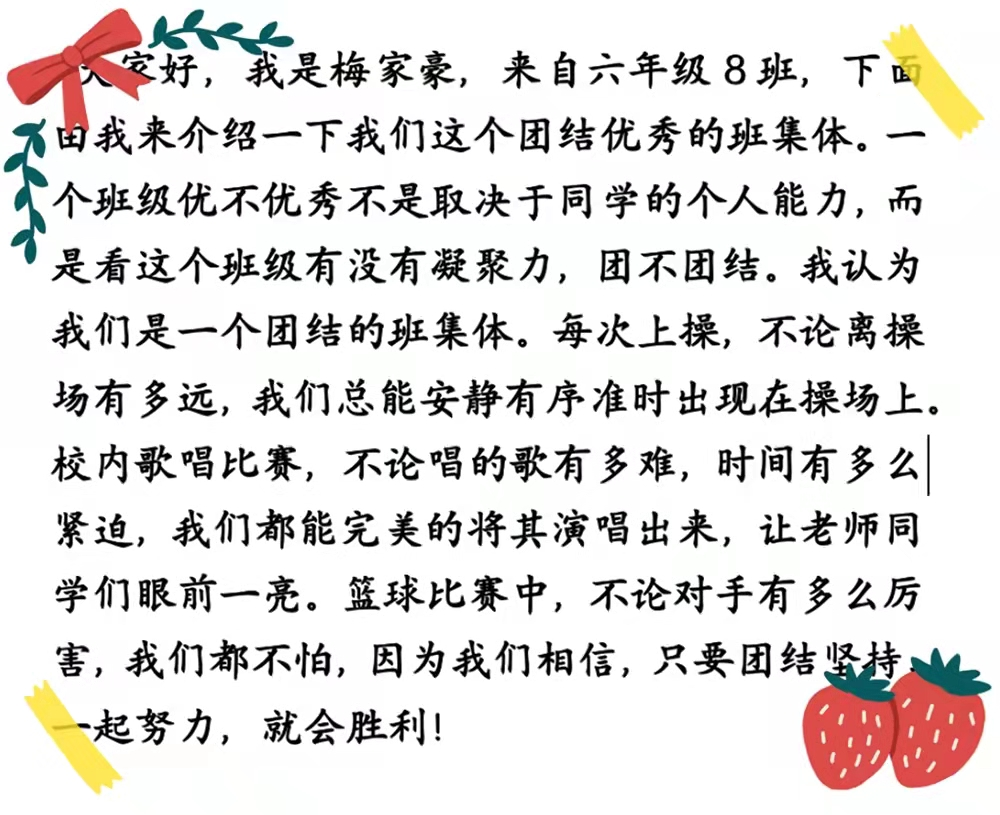 大家好，我是梅家豪，来自六年级8班，下面
由我来介绍一下我们这个团结优秀的班集体。一
个班级优不优秀不是取决于同学的个人能力，而
是看这个班级有没有凝聚力，团不团结。我认为
我们是一个团结的班集体。每次上操，不论离操
场有多远，我们总能安静有序准时出现在操场上。
校内歌唱比赛，不论唱的歌有多难，时间有多么
紧迫，我们都能完美的将其演唱出来，让老师同
学们眼前一亮。篮球比赛中，不论对手有多么厉
害，我们都不怕，因为我们相信，只要团结坚持，
一起努力，就会胜利！